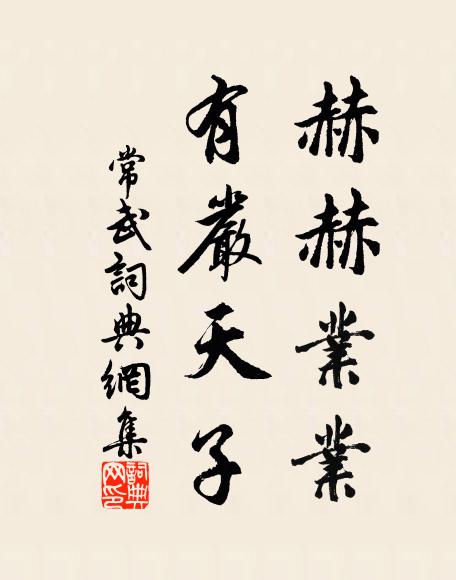 赫赫業業
有嚴天子
常武詞典網集
詞典网印